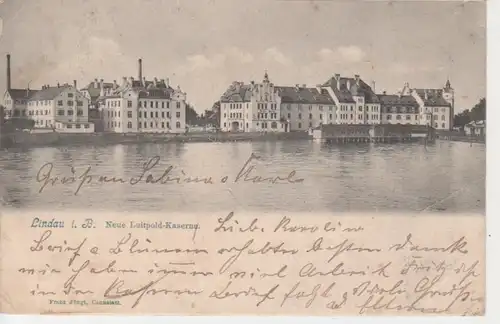 Grüßen Sabina u Karl
Lindau i. B. Neue Luitpold-Kaserne.
Liebe Karolin
Brief u Blumen erhalten Besten Dank
wir haben immer viel Arbeit Fritz ist
in der Kaserne Brief folgt
Franz Jüngt, Cannstatt.